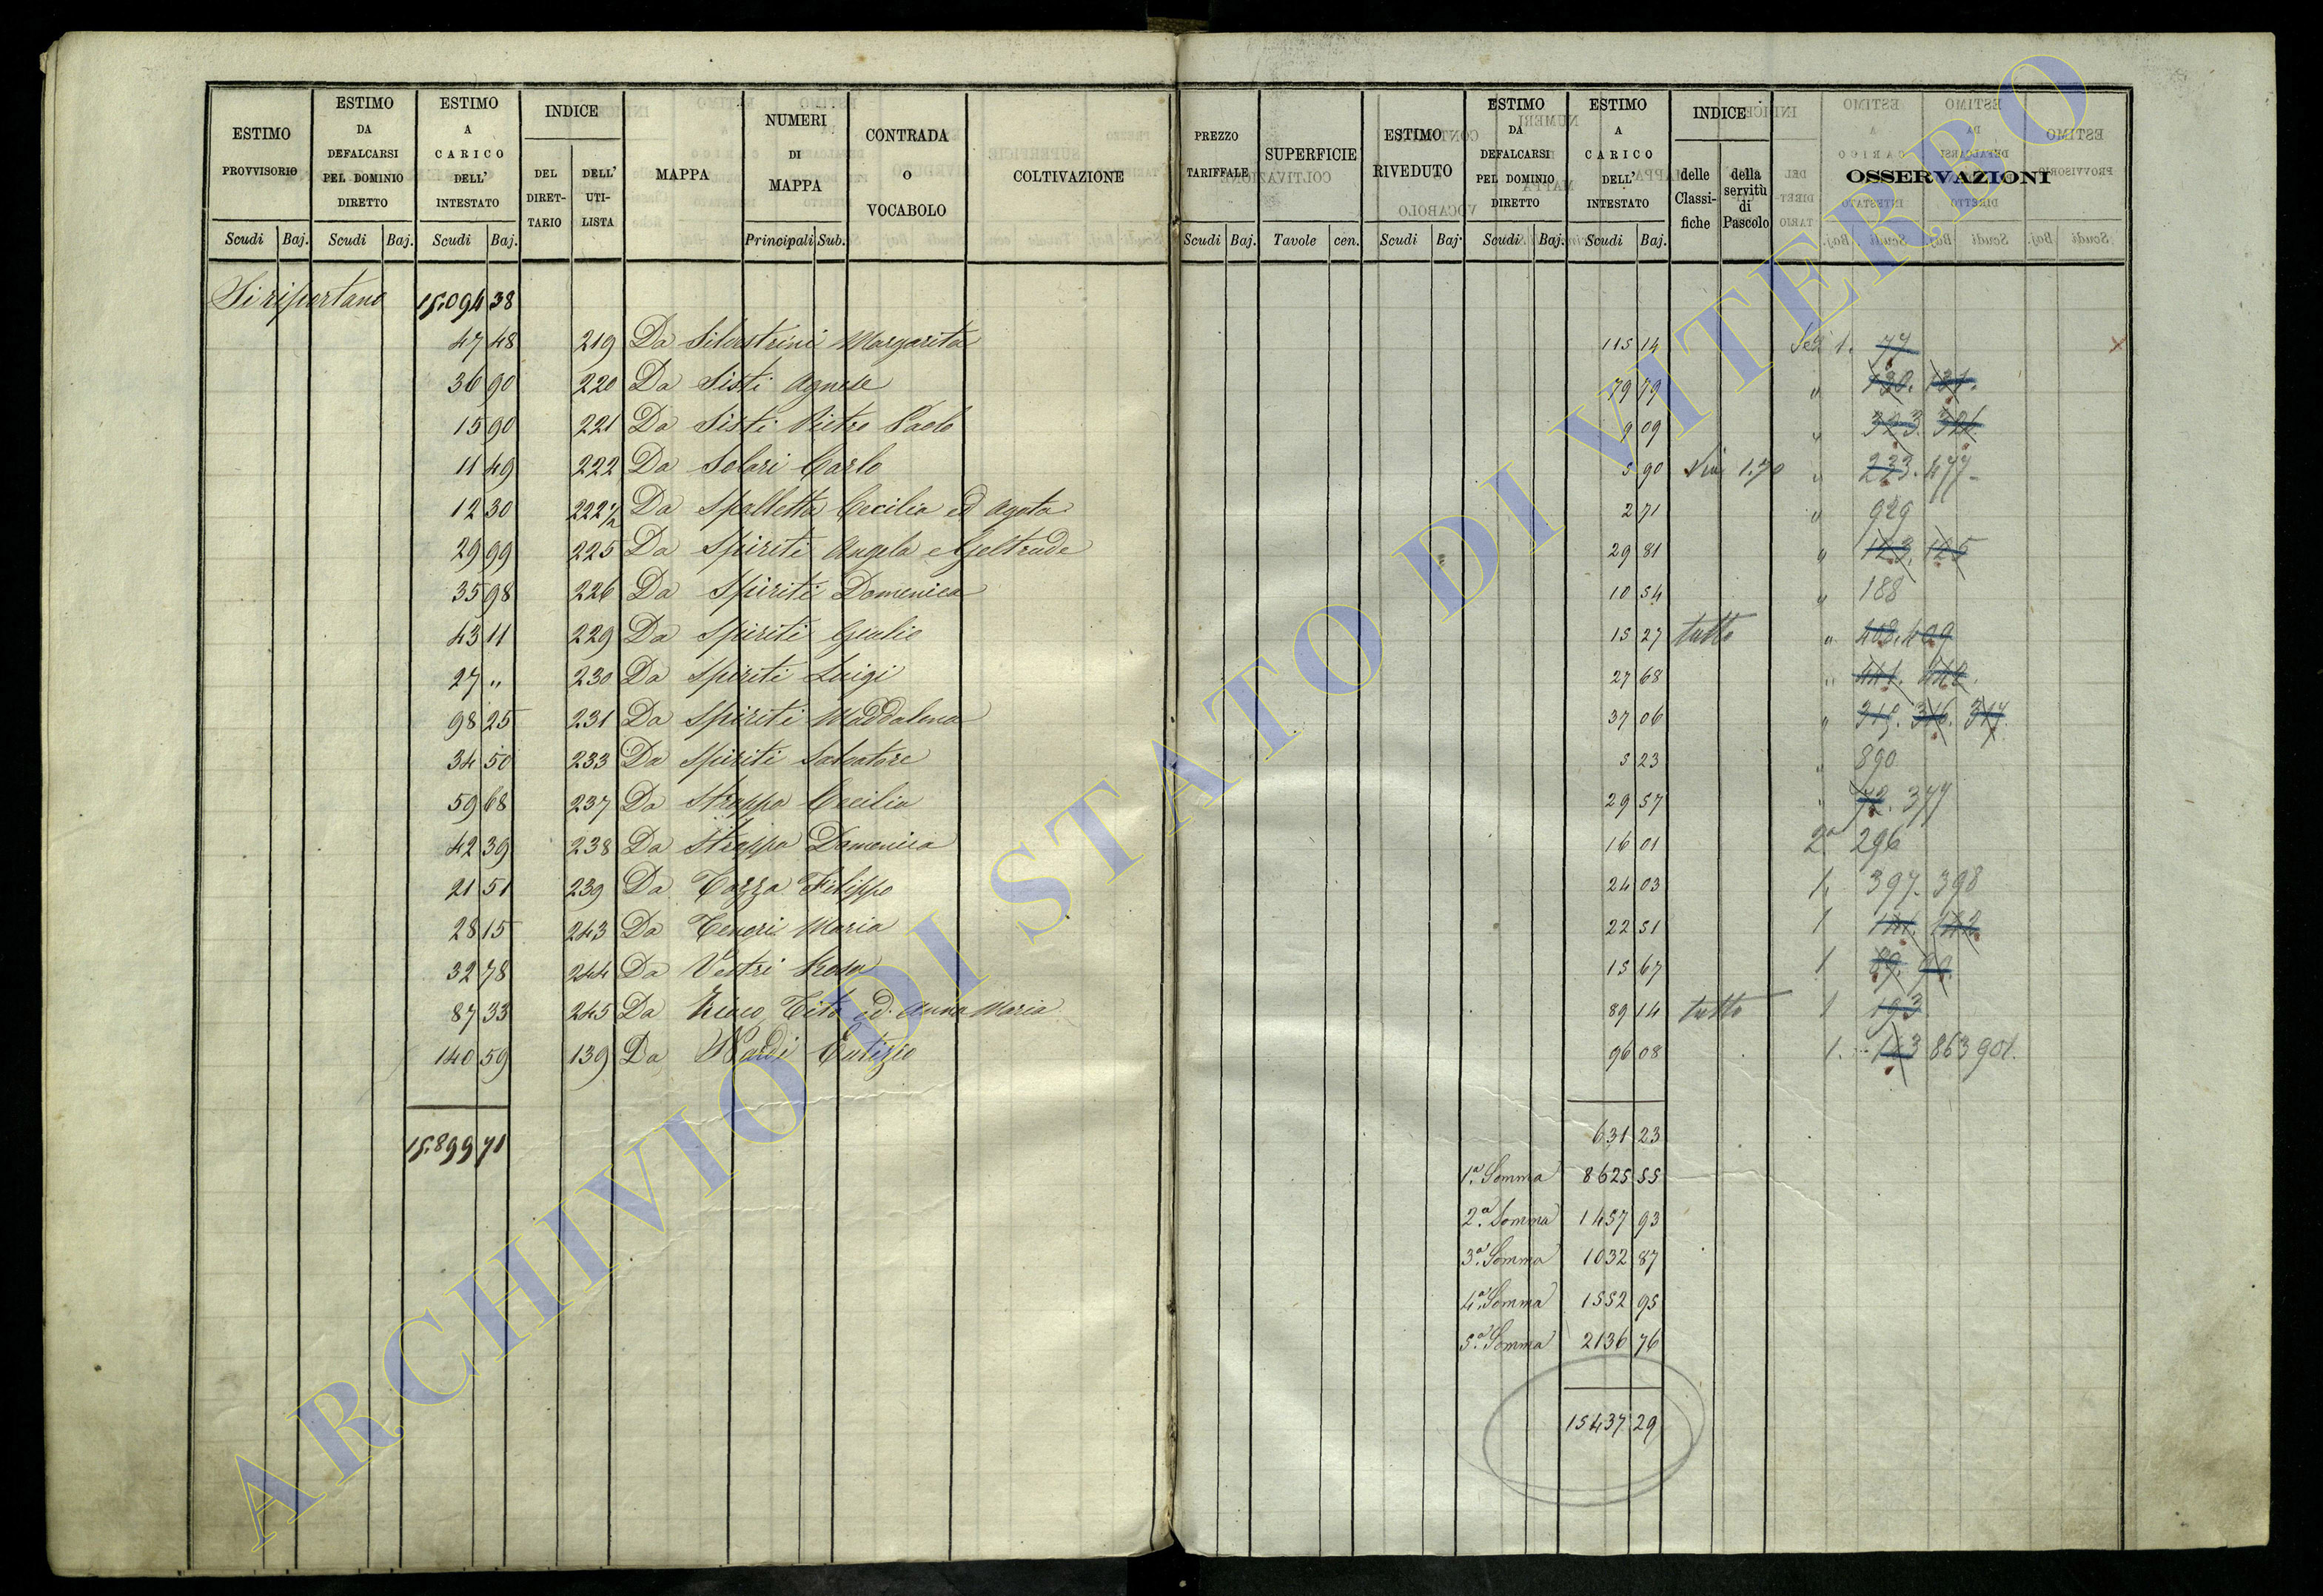 ESTIMO PROVVISORIO | ESTIMO DA DEFALCARSI PEL DOMINIO DIRETTO | ESTIMO A CARICO DELL' INTESTATO | INDICE | MAPPA | NUMERI DI MAPPA | CONTRADA O VOCABOLO | COLTIVAZIONE | PREZZO TARIFFALE | SUPERFICIE | ESTIMO RIVEDUTO | ESTIMO DA DEFALCARSI PEL DOMINIO DIRETTO | ESTIMO A CARICO DELL' INTESTATO | INDICE | OSSERVAZIONI
DEL DIRETTARIO | DELL' UTILISTA | delle Classifiche | della servitù di Pascolo
Scudi Baj. Scudi Baj. Scudi Baj. Principali Sub. Scudi Baj. Tavole cen. Scudi Baj. Scudi Baj. Scudi Baj.
Si riportano 15.094 38
47 48 219 Da Silvestrini Margarita 115 14 Sez 1. 77
36 90 220 Da Sisti Agnese 79 79 " 130. 131.
15 90 221 Da Sisti Pietro Paolo 9 09 " 323. 324
11 49 222 Da Solari Carlo 5 90 1.70 " 233. 477
12 30 222 1/2 Da Spalletta Cecilia ed Agata 2 71 " 929
29 99 225 Da Spiriti Angela e Geltrude 29 81 " 123. 125
35 98 226 Da Spiriti Domenica 10 54 " 188
43 11 229 Da Spiriti Giulio 15 27 tutto " 408. 409
27 " 230 Da Spiriti Luigi 27 68 " 441. 442.
98 25 231 Da Spiriti Maddalena 37 06 " 315. 316. 317.
34 50 233 Da Spiriti Salvatore 5 23 " 890
59 68 237 Da Strappa Cecilia 29 57 " 72. 377
42 39 238 Da Strappa Domenica 16 01 2a 296
21 51 239 Da Tozza Filippo 24 03 1. 397. 398
28 15 243 Da Teneri Maria 22 51 1 141. 142.
32 78 244 Da Vestri Rosa 15 67 1 89. 90.
87 33 245 Da Tito ed Anna Maria 89 14 tutto 1 193
140 59 139 Da Nardi Eutizio 96 08 1. 143 863 901.
15.899 71
631 23
1a. Somma 8625 55
2a. Somma 1457 93
3a. Somma 1032 87
4a. Somma 1552 95
5a. Somma 2136 76
15437 29
ARCHIVIO DI STATO DI VITERBO